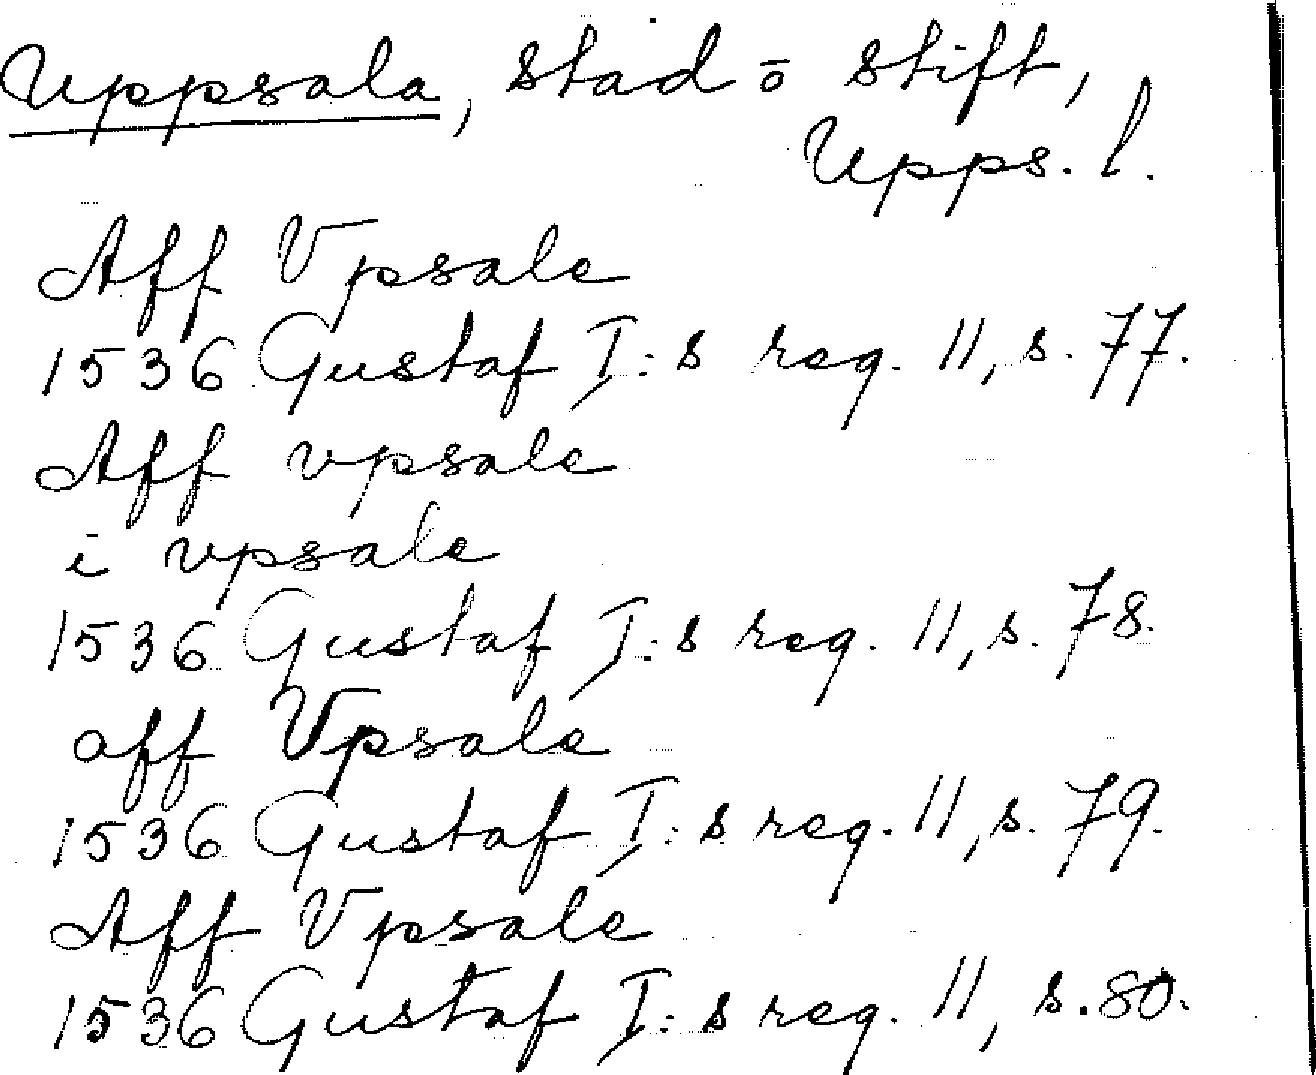 Uppsala, stad o stift,
Upps. l.
Aff Vpsale
1536 Gustaf I:s reg. 11, s. 77.
Aff vpsale
i vpsale
1536 Gustaf I:s reg. 11, s. 78.
aff Vpsale
1536 Gustaf I:s reg. 11, s. 79.
Aff Vpsale
1536 Gustaf I:s reg. 11, s. 80.